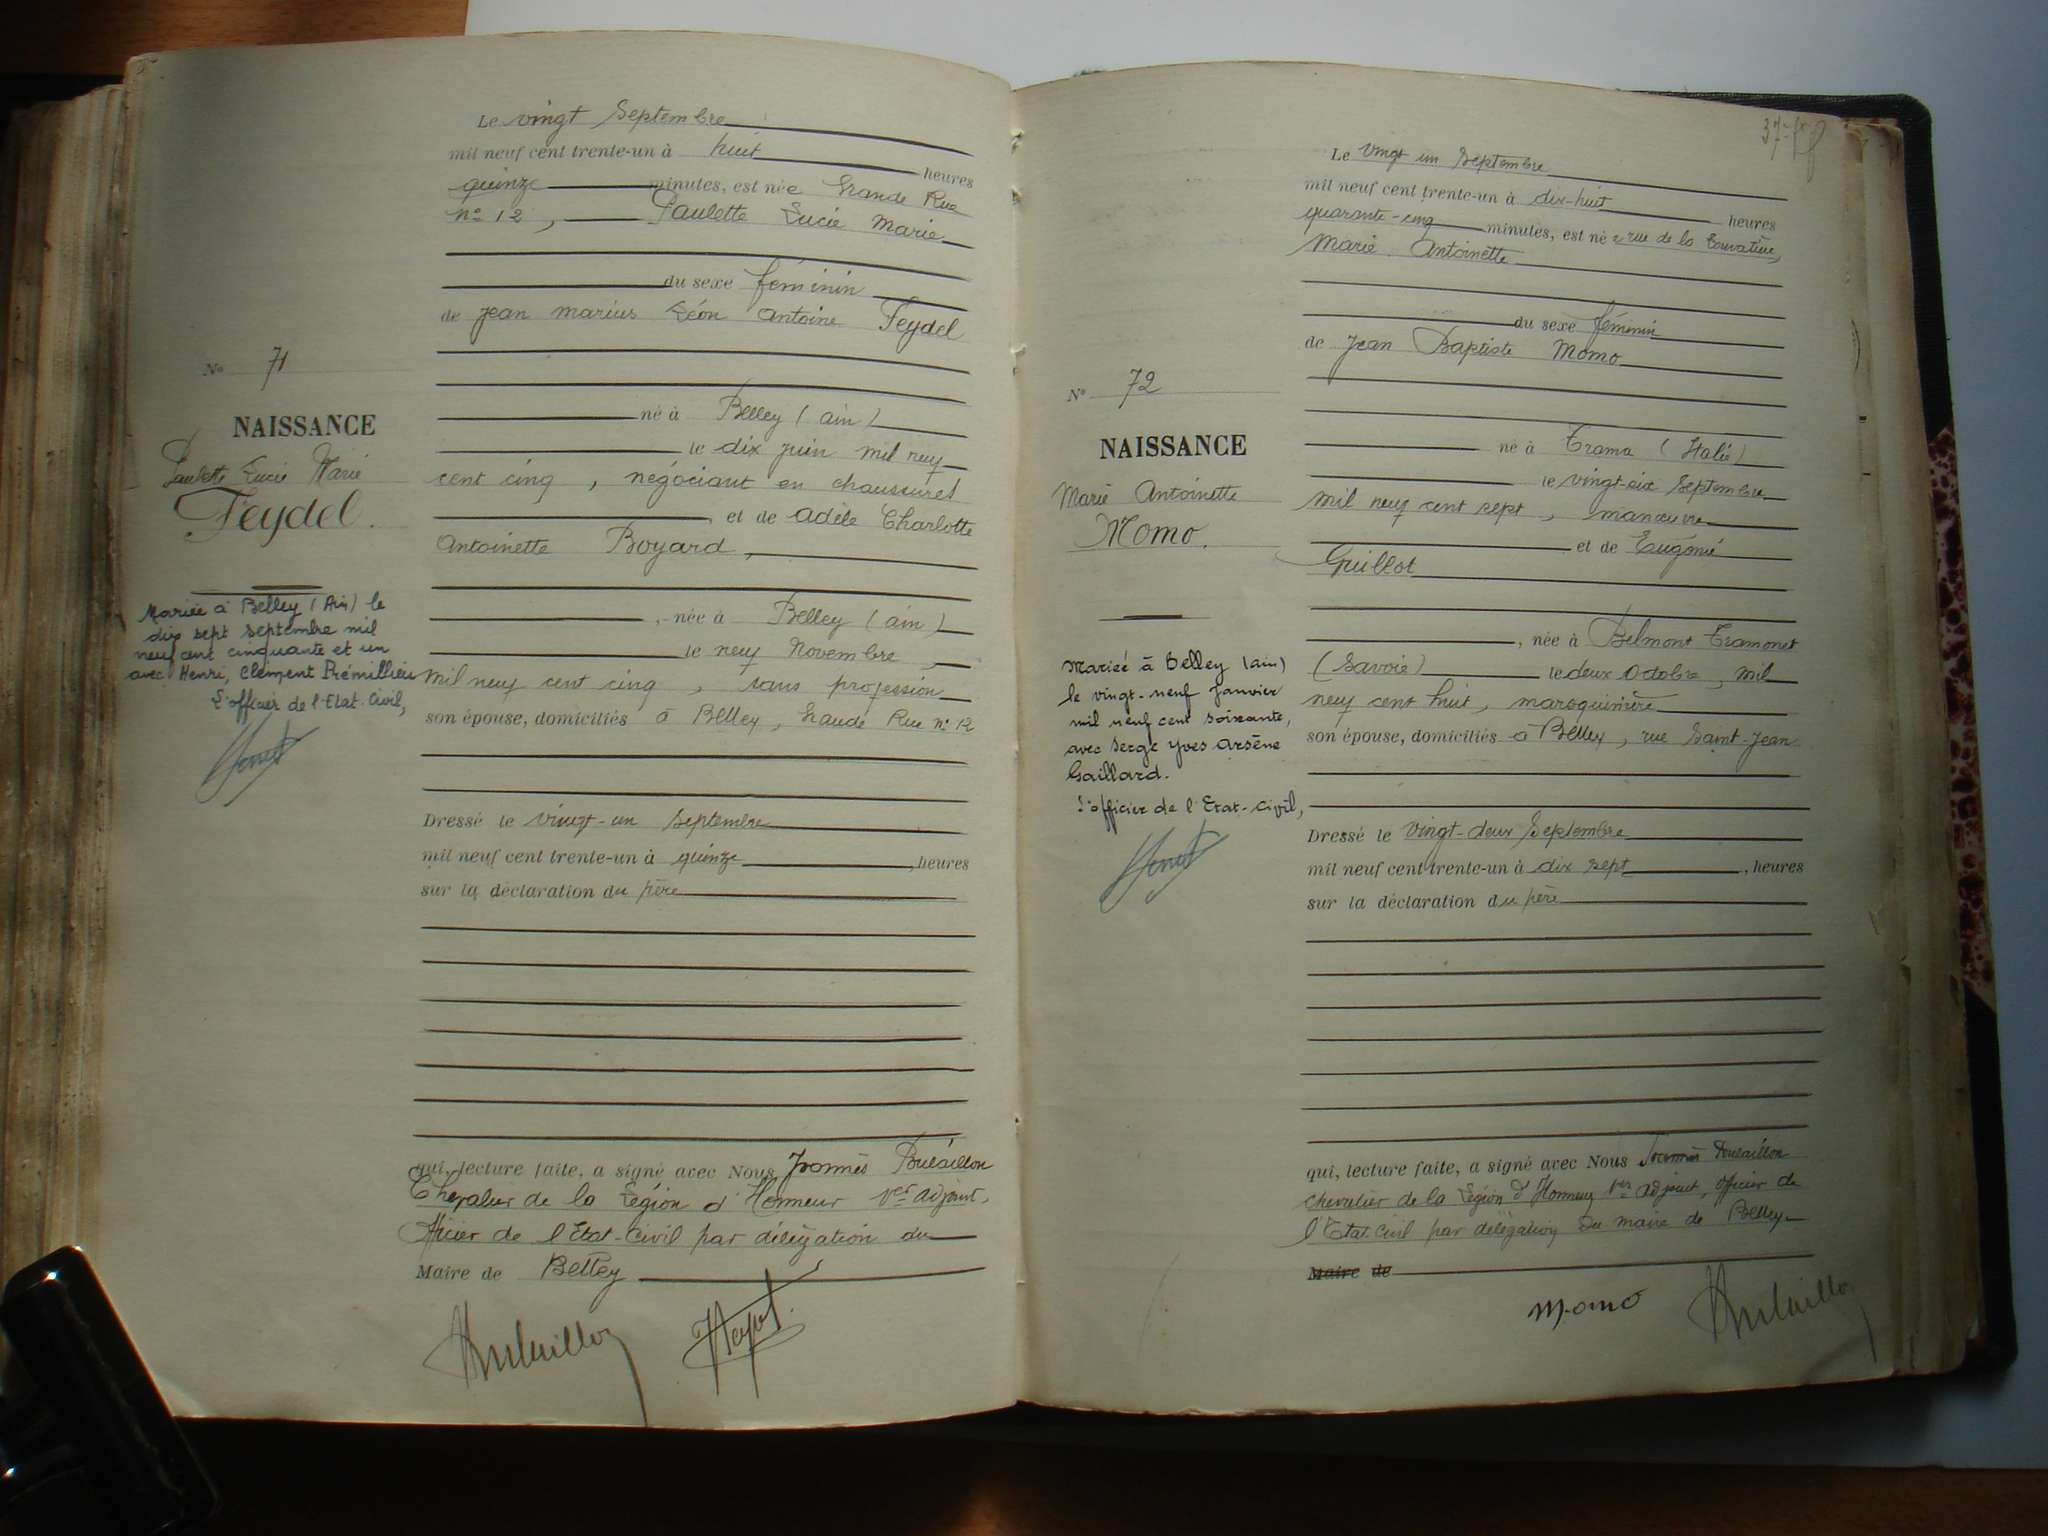 Le vingt Septembre
mil neuf cent trente-un à huit heures
quinze minutes, est née Grande Rue
n° 12, Paulette Lucie Marie
du sexe féminin
de Jean Marius Léon Antoine Feydel
né à Belley (ain)
le dix juin mil neuf
cent cinq, négociant en chaussures
et de Adèle Charlotte
Antoinette Boyard,
, née à Belley (ain)
le neuf Novembre
mil neuf cent cinq, sans profession
son épouse, domiciliés à Belley, Grande Rue n° 12
Dressé le vingt-un septembre
mil neuf cent trente-un à quinze, heures
sur la déclaration du père
qui, lecture faite, a signé avec Nous
Chevalier de la Légion d'Honneur 1er adjoint,
officier de l'Etat-Civil par délégation du
Maire de Belley
N° 71
NAISSANCE
Paulette Lucie Marie
Feydel.
Mariée à Belley (Ain) le
dix sept septembre mil
neuf cent cinquante et un
avec Henri, Clément Prémillieu
L'officier de l'Etat-Civil,
37
Le vingt un Septembre
mil neuf cent trente-un à dix-huit heures
quarante-cinq minutes, est née rue de la
Marie Antoinette
du sexe féminin
de Jean Baptiste Momo
né à Trama (Italie)
le vingt-six Septembre
mil neuf cent sept, manœuvre
et de Eugénie
Guillot
, née à Belmont Tramonet
(Savoie) le deux Octobre, mil
neuf cent huit, maroquinière
son épouse, domiciliés à Belley, rue Saint-Jean
Dressé le vingt-deux Septembre
mil neuf cent trente-un à dix sept, heures
sur la déclaration du père
qui, lecture faite, a signé avec Nous
chevalier de la Légion d'Honneur 1er adjoint, officier de
l'Etat Civil par délégation du maire de Belley
Maire de
Momo
N° 72
NAISSANCE
Marie Antoinette
Momo.
Mariée à Belley (ain)
le vingt-neuf Janvier
mil neuf cent soixante,
avec Serge Yves Arsène
Gaillard.
L'officier de l'Etat-Civil,